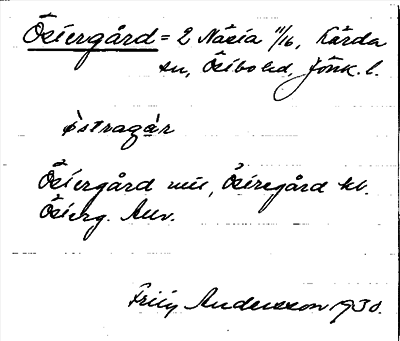 Östergård = 2 Näsia 11/16, Kärda
sn, Östbo hd, Jönk. l.
östragár
Östergård mtl, Östregård kb.
Österg. Anv.
Fritz Andersson 1930.